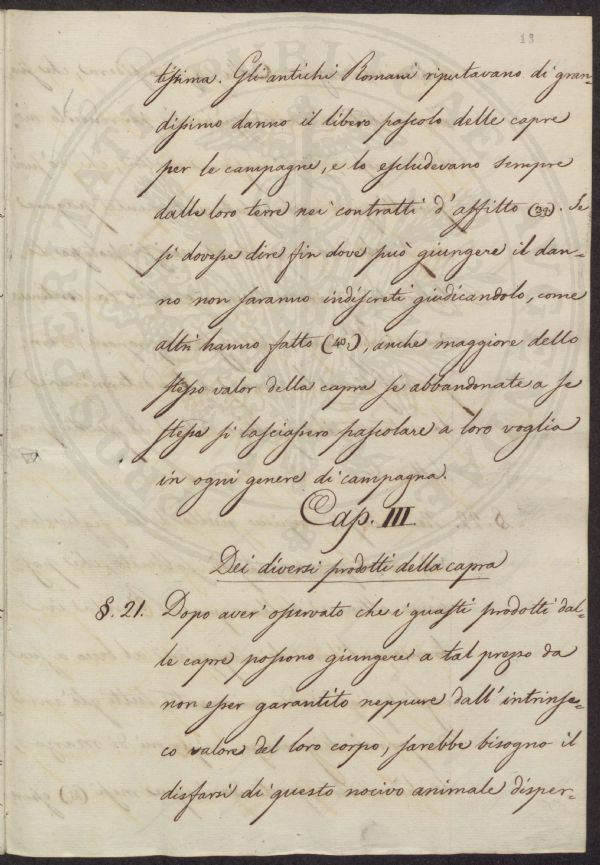 13
tissima. Gli antichi Romani riputavano di gran-
dissimo danno il libero pascolo delle capre
per le campagne, e lo escludevano sempre
dalle loro terre nei contratti d'affitto (39). Se
si dovesse dire fin dove può giungere il dan-
no non saranno indiscreti giudicandolo, come
altri hanno fatto (40.), anche maggiore dello
stesso valor della capra se abbandonate a se
stesse si lasciassero pascolare a loro voglia
in ogni genere di campagna.
Cap. III
Dei diversi prodotti della capra
§. 21. Dopo aver' osservato che i guasti prodotti dal-
le capre possono giungere a tal prezzo da
non esser garantito neppure dall' intrinse-
co valore del loro corpo, sarebbe bisogno il
disfarsi di questo nocivo animale disper-